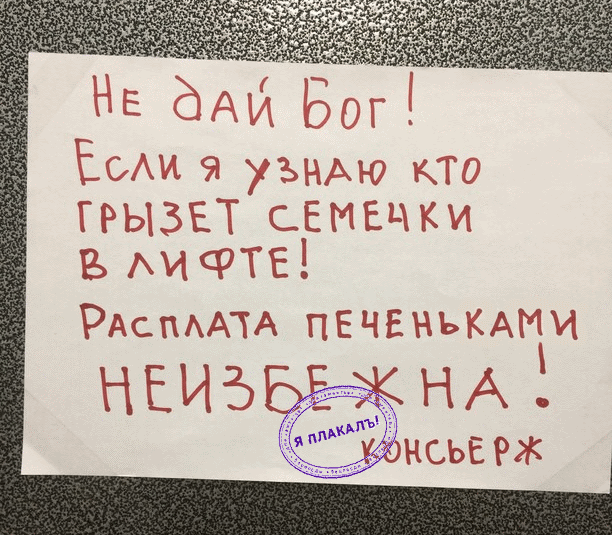 НЕ ДАЙ БОГ!
ЕСЛИ Я УЗНАЮ КТО
ГРЫЗЕТ СЕМЕЧКИ
В ЛИФТЕ!
РАСПЛАТА ПЕЧЕНЬКАМИ
НЕИЗБЕЖНА!
Я ПЛАКАЛЪ!
КОНСЬЕРЖ